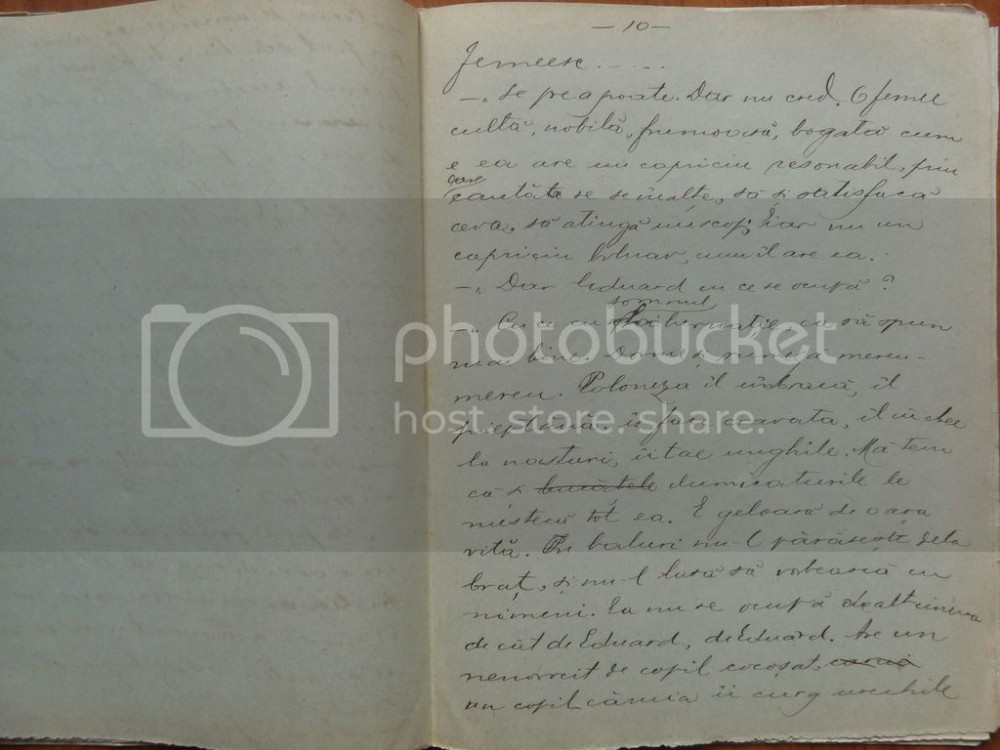 — 10 —
femeesc . . . . .
—. Se prea poate. Dar nu cred. O femee
cultă, nobilă, frumoasă, bogată cum
e ea are un capriciu resonabil, prin
care
caută se se înalțe, să și satisfacă
ceva, să atingă un scop; iar nu un
capriciu bolnav, cum îl are ea.
—. Dar Eduard cu ce se ocupă?
somnul
—. Cu ce cu hibernație ca să spun
mai bine. Doarme și mereu-
mereu. Poloneza îl îmbracă, îl
piaptănă, îi face cravata, îl încheie
la nasturi, îi tae unghiile. Mă tem
că și bucățele dumicaturile le
mistecă tot ea. E geloasă de o ara
vită. În baluri nu-l părăsește dela
braț, și nu-l lasă să vorbească cu
nimeni. Ea nu se ocupă de altcineva
de cât de Eduard, de Eduard. Are un
nenorocit de copil cocoșat,
un copil căruia îi curg urechile
photobucket
host. store. share.